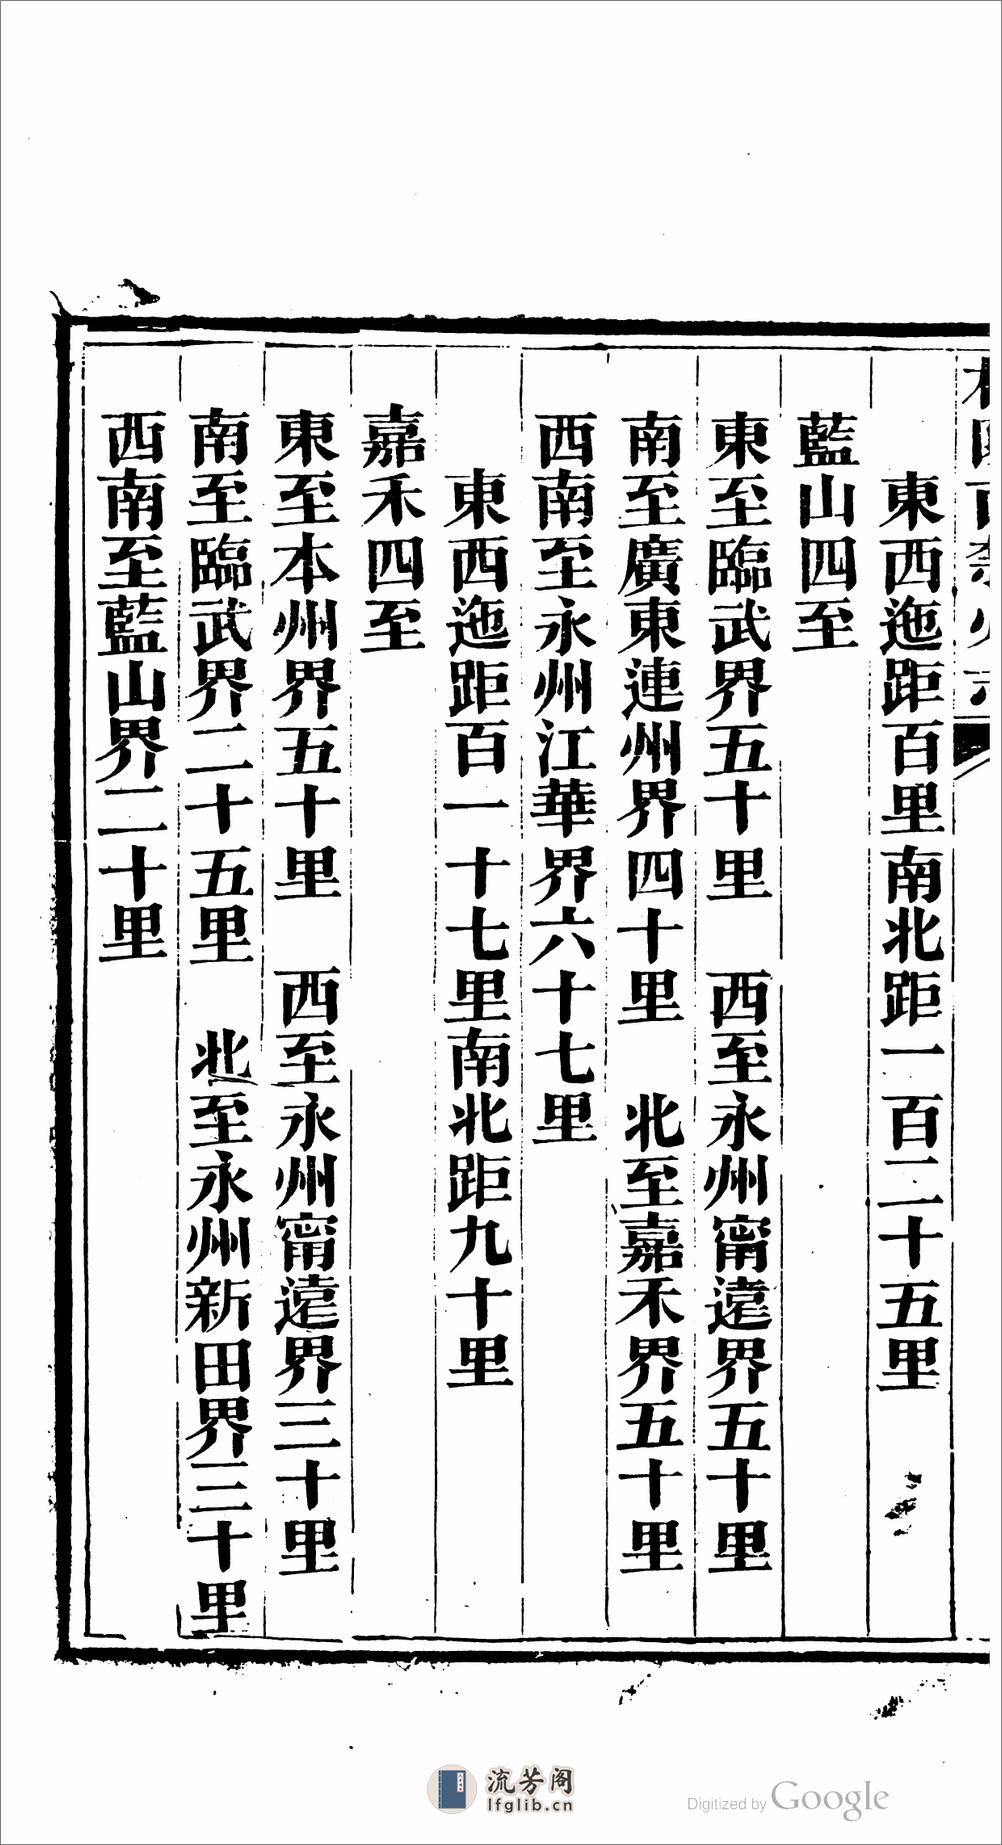 東西迤距百里南北距一百二十五里
藍山四至
東至臨武界五十里　西至永州甯遠界五十里
南至廣東連州界四十里　北至嘉禾界五十里
西南至永州江華界六十七里
東西迤距百一十七里南北距九十里
嘉禾四至
東至本州界五十里　西至永州甯遠界三十里
南至臨武界二十五里　北至永州新田界三十里
西南至藍山界二十里
流芳阁
lfglib.cn
Digitized by Google